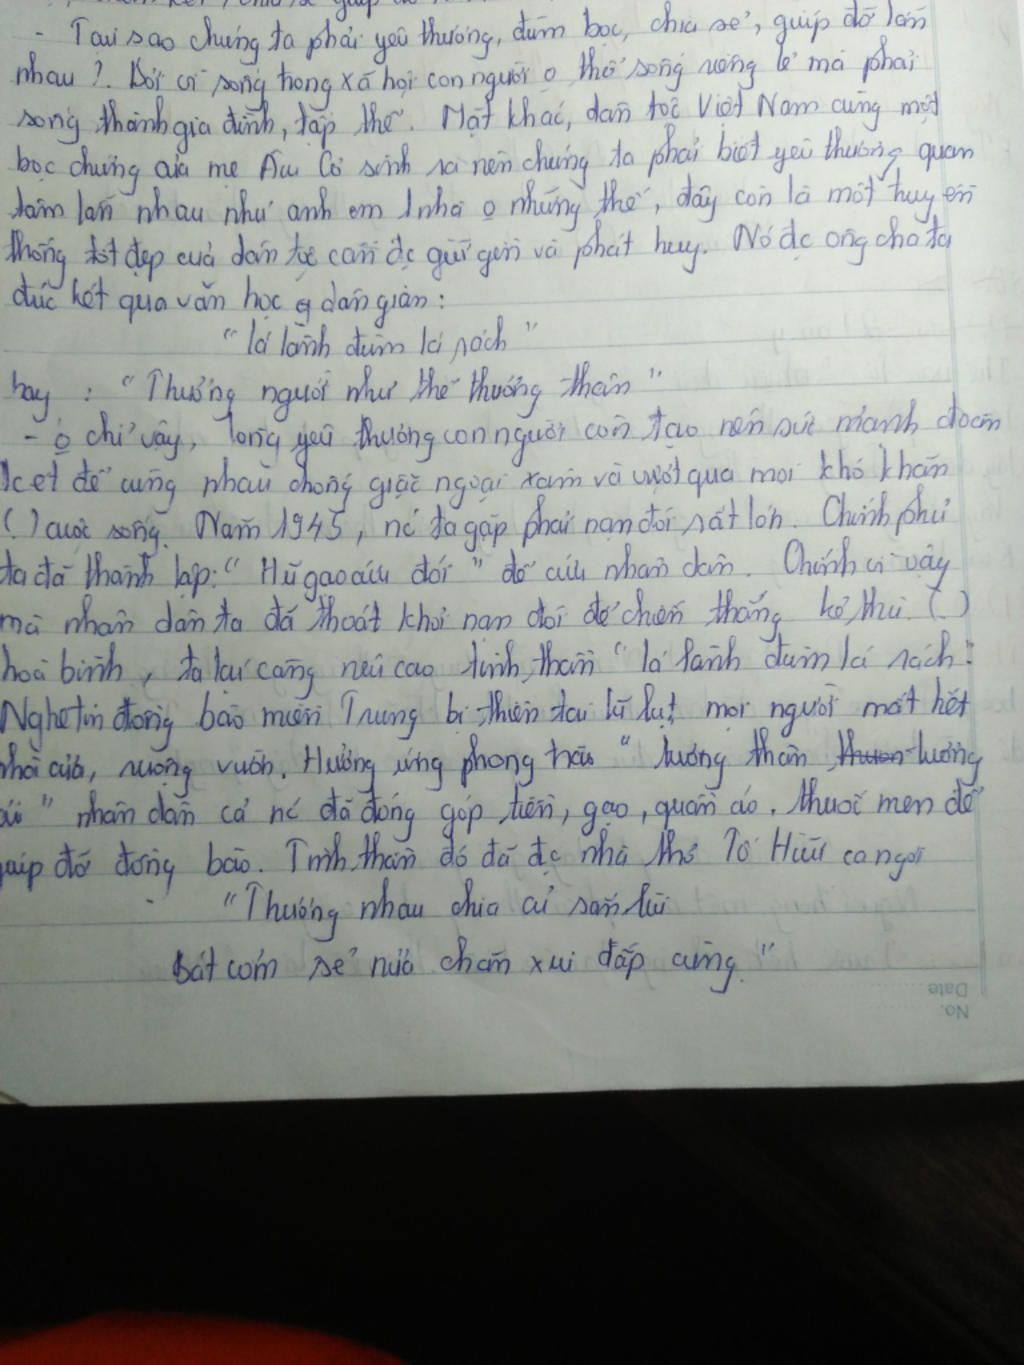 - Tại sao chúng ta phải yêu thương, đùm bọc, chia sẻ, giúp đỡ lẫn
nhau ?. Bởi vì sống trong xã hội con người o thể sống riêng lẻ mà phải
sống thành gia đình, tập thể. Mặt khác, dân tộc Việt Nam cùng một
bọc chứng của mẹ Âu Cơ sinh ra nên chúng ta phải biết yêu thương quan
tâm lẫn nhau như anh em 1 nhà o những thế, đây còn là một truyền
thống tốt đẹp của dân tộc cần đc giữ gìn và phát huy. Nó đc ông cha ta
đúc kết qua văn học dân gian :
"lá lành đùm lá rách"
hay : "Thương người như thể thương thân"
- o chỉ vậy, lòng yêu thương con người còn tạo nên sức mạnh đoàn
kết để cùng nhau chống giặc ngoại xâm và vượt qua mọi khó khăn
( ) cuộc sống. Năm 1945, nc ta gặp phải nạn đói rất lớn. Chính phủ
ta đã thành lập: "Hũ gạo cứu đói" để cứu nhân dân. Chính vì vậy
mà nhân dân ta đã thoát khỏi nạn đói để chiến thắng kẻ thù. ( )
hoà bình, ta lại càng nêu cao tinh thần "lá lành đùm lá rách".
Nghe tin đồng bào miền Trung bị thiên tai lũ lụt, mọi người mất hết
nhà cửa, ruộng vườn. Hưởng ứng phong trào "tương thân tương
ái" nhân dân cả nc đã đóng góp tiền, gạo, quần áo, thuốc men để
giúp đỡ đồng bào. Tinh thần đó đã đc nhà thơ Tố Hữu ca ngợi
"Thương nhau chia củ sắn lùi
Bát cơm sẻ nửa chăn xui đắp cùng."
Date
No.